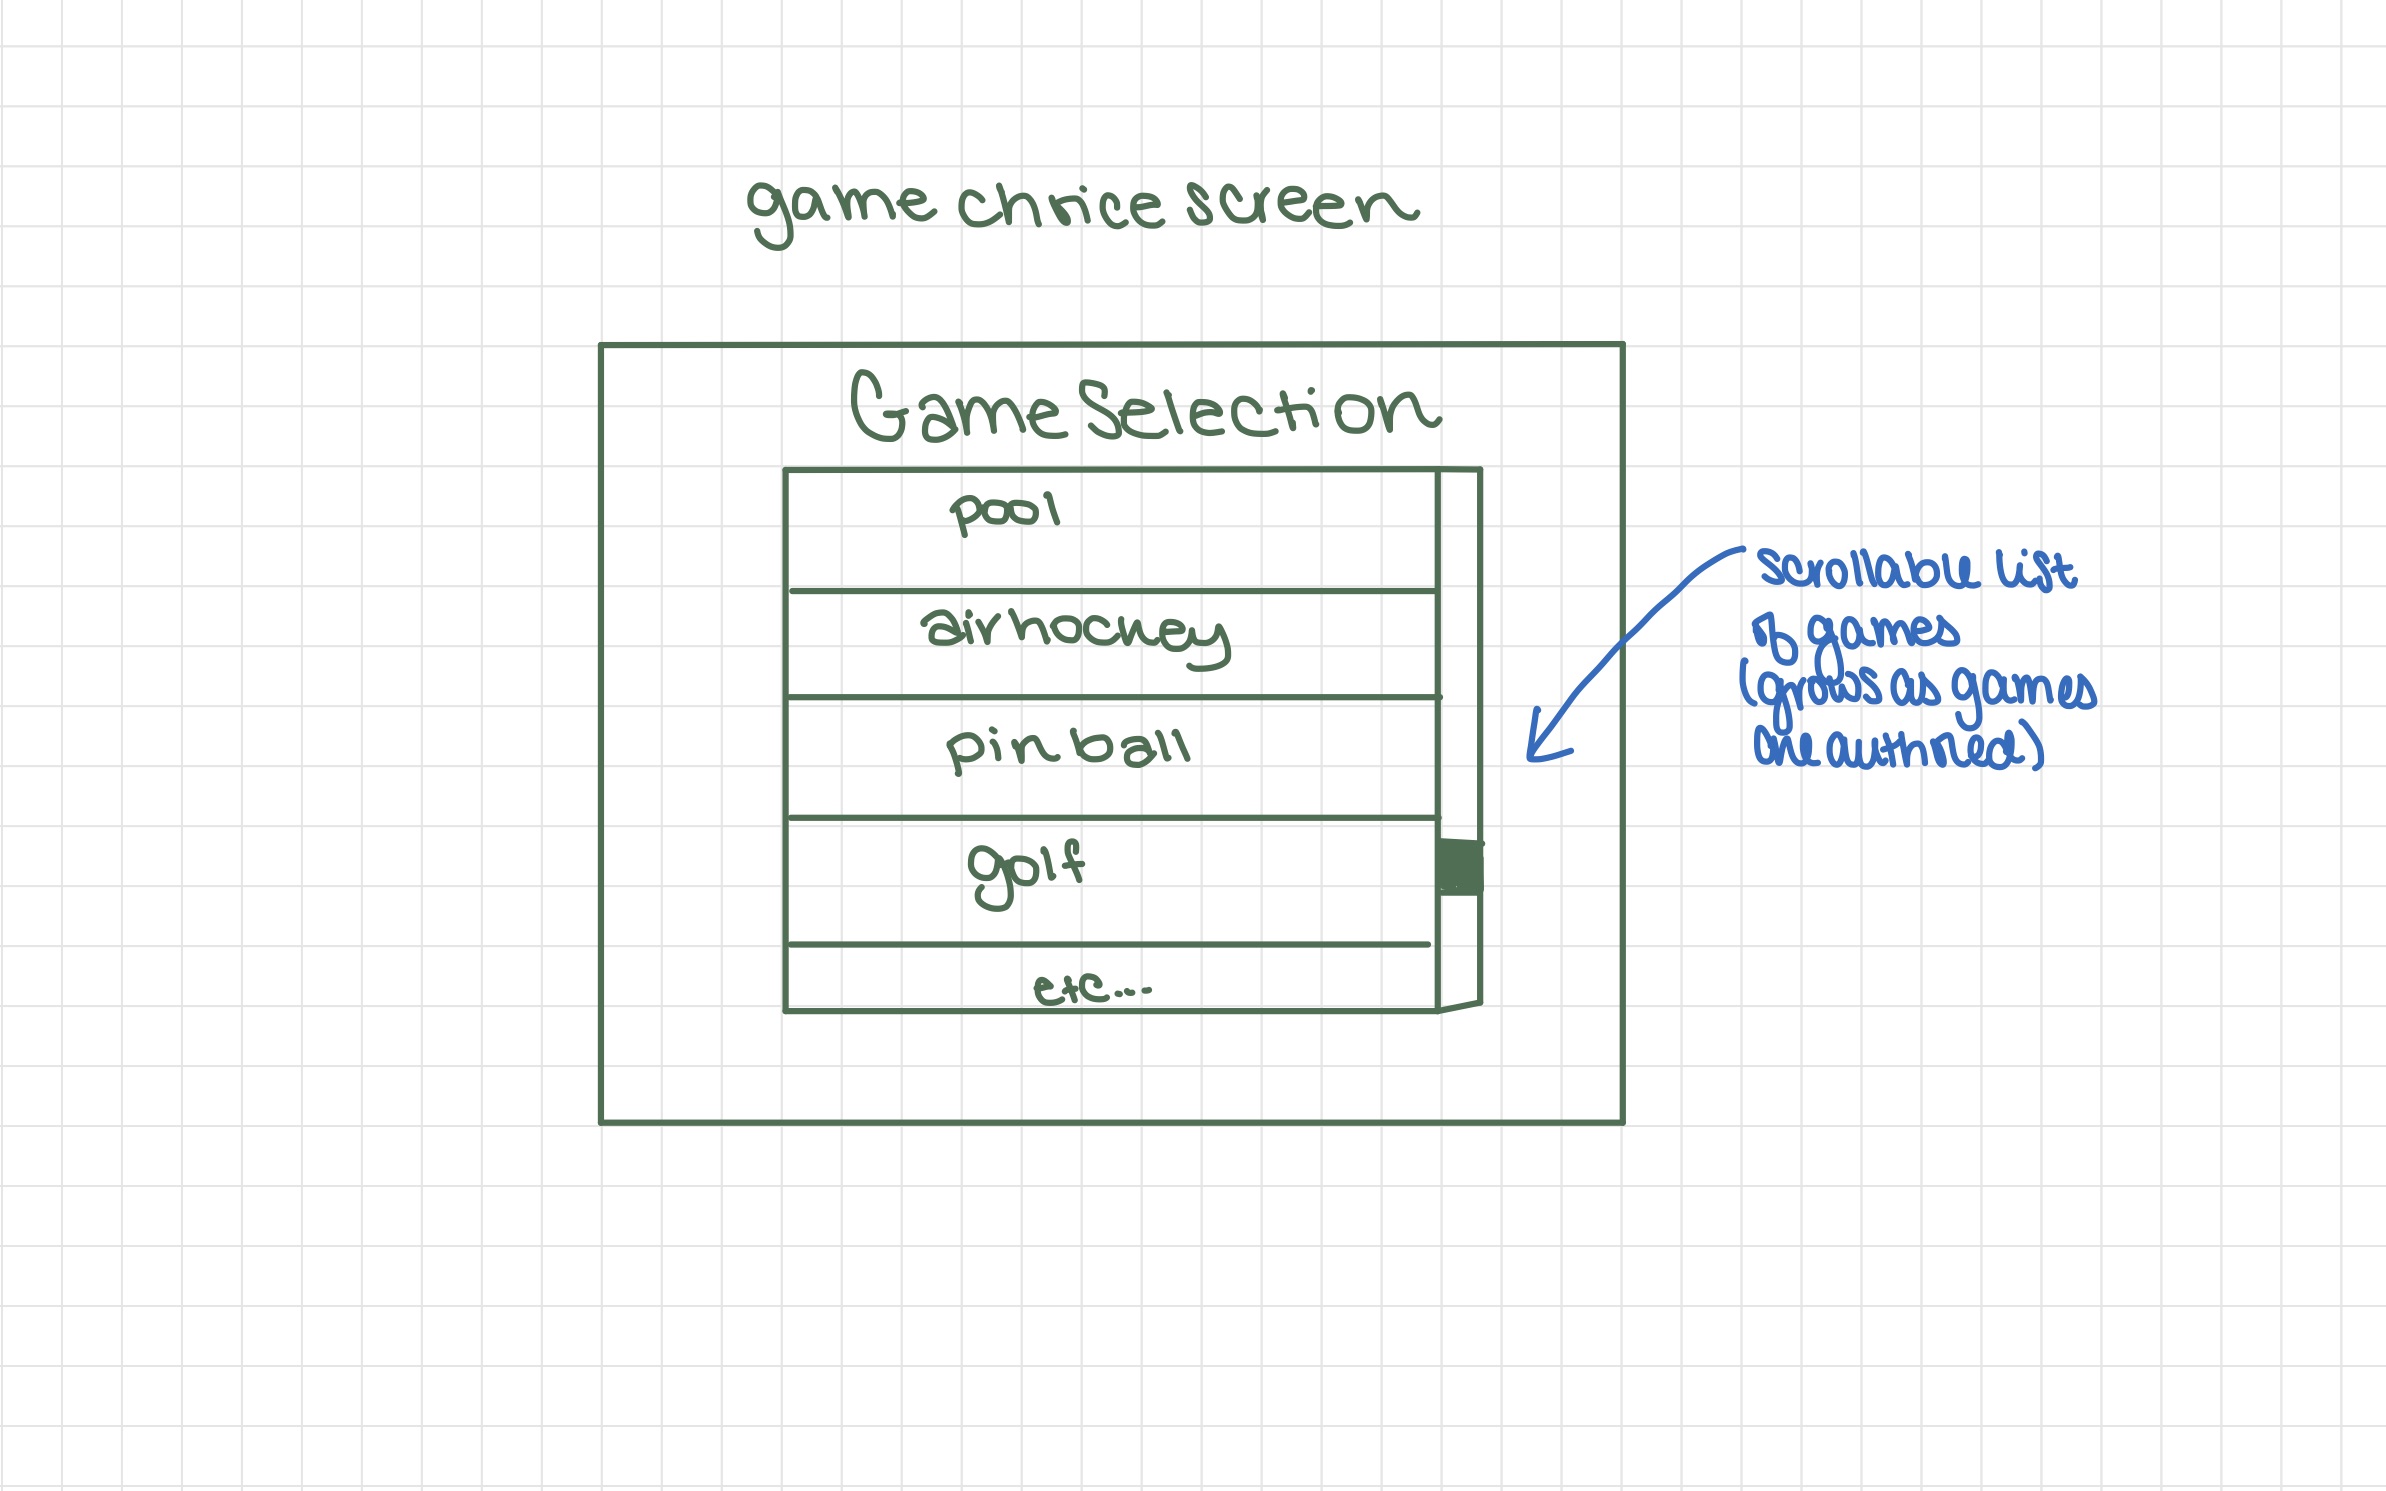 game choice screen
Game Selection
pool
air hockey
pin ball
golf
etc...
scrollable list
of games
(grows as games
are authored)